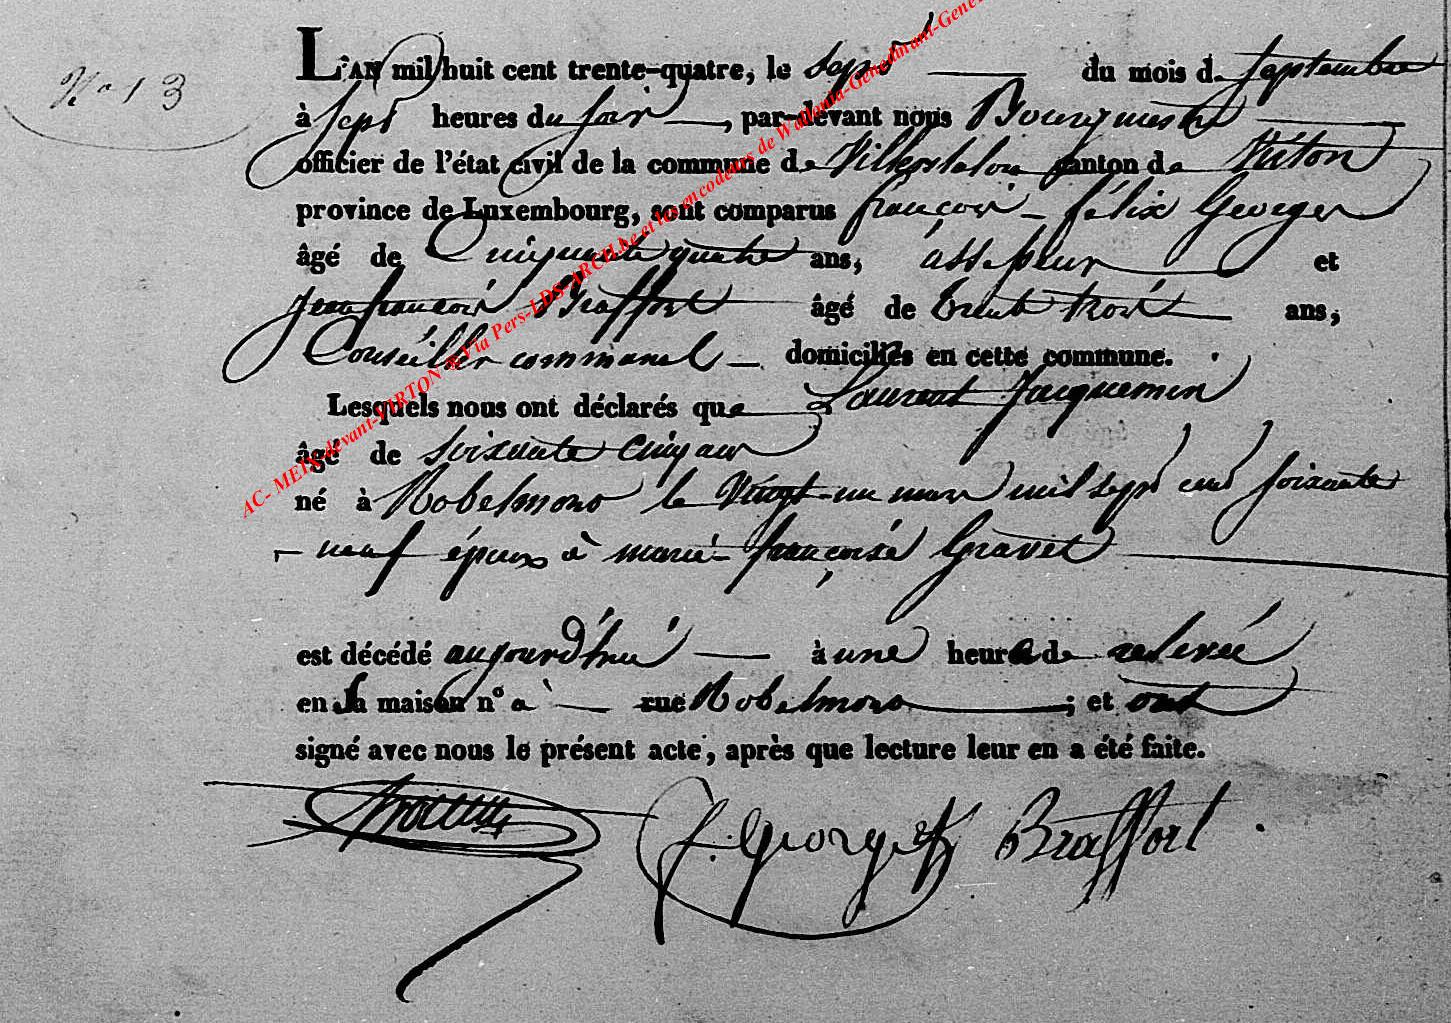 N° 13
L'AN mil huit cent trente-quatre, le sept du mois de septembre
à sept heures du soir, par-devant nous Bourguestre
officier de l'état civil de la commune de Villerslaloue canton de Virton
province de Luxembourg, sont comparus françois félix Georges
âgé de Cinquante quatre ans, assesseur et
jean françois Braffort âgé de trente trois ans,
Conseiller communal domiciliés en cette commune.
Lesquels nous ont déclarés que Laurent Jacquemin
âgé de soixante cinq ans
né à Robelmont le Vingt-un mars mil sept cent soixante
neuf époux à marie françoise Gravet
est décédé aujourd'hui à une heure de relevée
en sa maison n° à rue Robelmont; et ont
signé avec nous le présent acte, après que lecture leur en a été faite.
f: Georges Braffort
AC- MEIX-devant-VIRTON via Pers-LDS-ARCHbe et les encodeurs de Wallonia-Genedinant-Gene